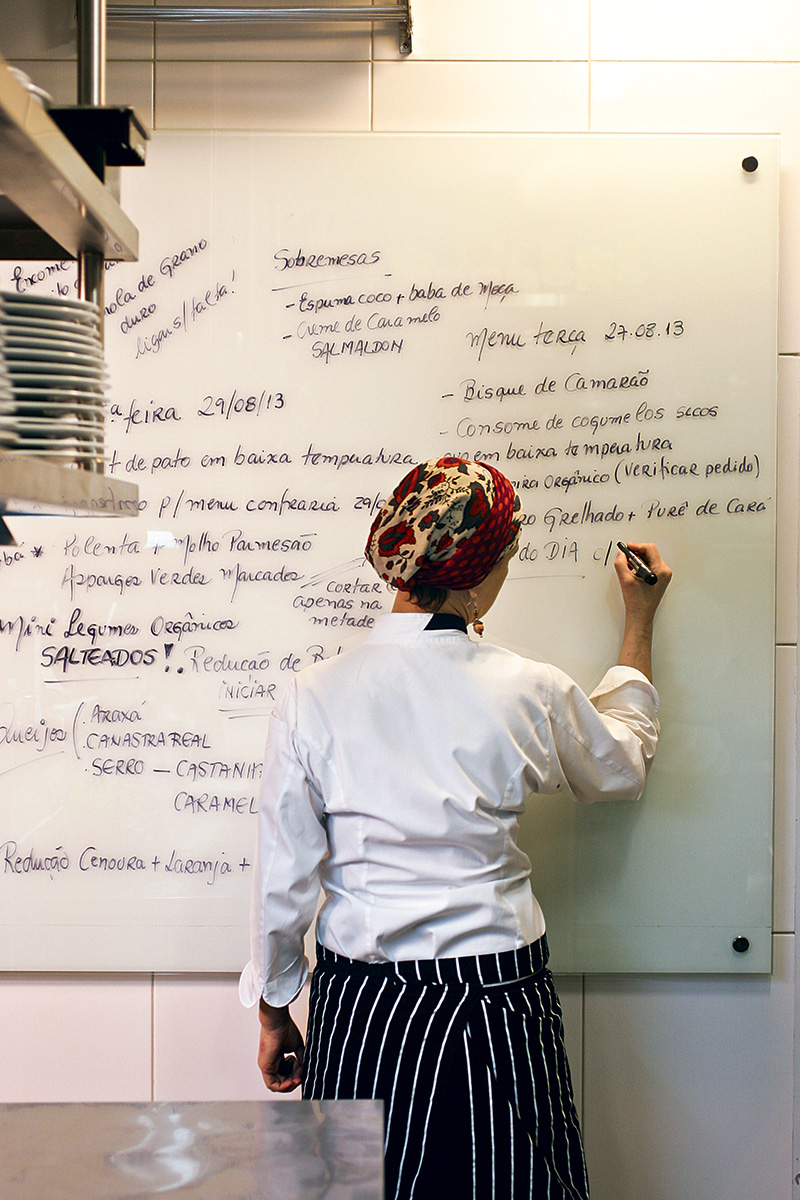 Sobremesas
- Espuma coco + baba de moça
- Creme de Caramelo
SALMALDON
Encome
nola de Grano
duro
ligar s/ falta!
Menu terça 27.08.13
- Bisque de Camarão
- Consome de cogumelos secos
em baixa temperatura
Orgânico (verificar pedido)
Grelhado + Purê de Cará
do DIA c/
ª feira 29/08/13
de pato em baixa temperatura
p/ menu confraria 29/
* Polenta + Molho Parmesão
Aspargos Verdes Marcados
cortar
apenas na
metade
Mini Legumes Orgânicos
SALTEADOS !. Redução de
INICIAR
Queijos ( . Araxá
. CANASTRA REAL
. SERRO — CASTANHA
CARAMEL
Redução Cenoura + Laranja +